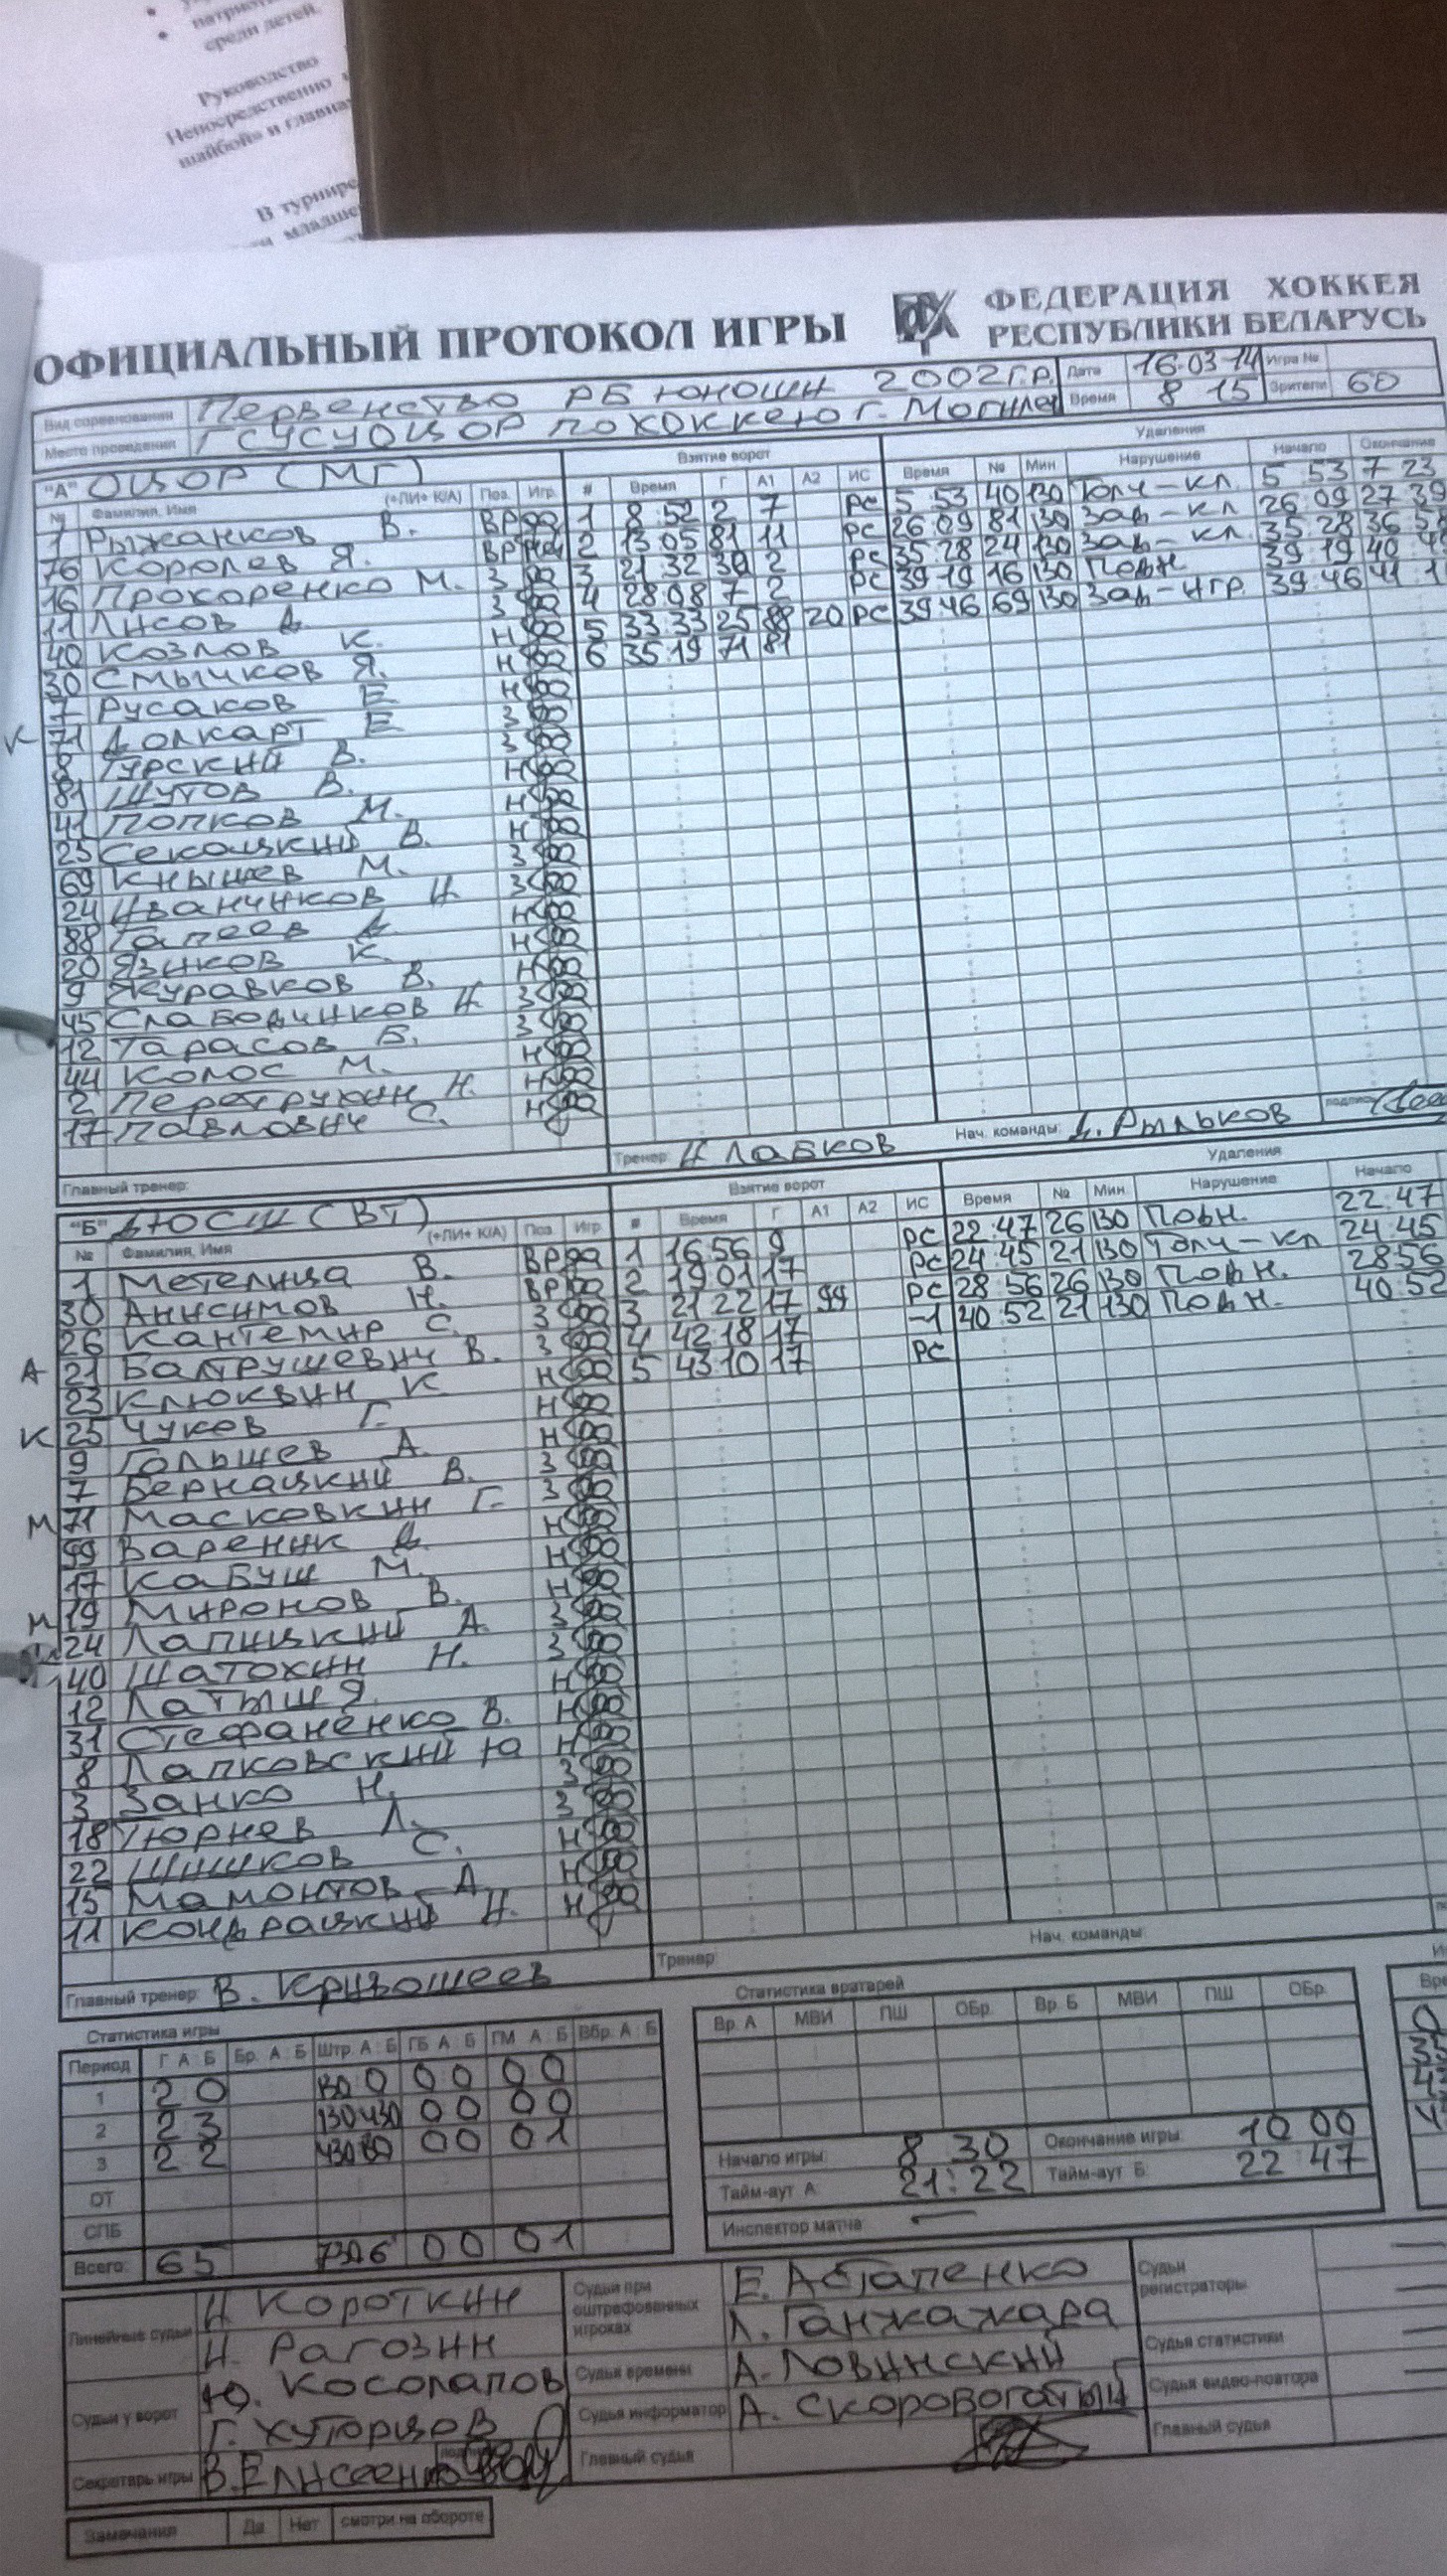 патриот
среди детей.
Руководство
Непосредственно
шайбой» и главна
В турнире
младше
ОФИЦИАЛЬНЫЙ ПРОТОКОЛ ИГРЫ
ФЕДЕРАЦИЯ ХОККЕЯ
РЕСПУБЛИКИ БЕЛАРУСЬ
Вид соревнования Первенство РБ юноши 2002г.р. Дата 16.03.14 Игра №
Место проведения ГСУСУ ОЦОР по хоккею г. Могилев Время 8 15 Зрители 60
"А" ОЦОР (МГ) Взятие ворот Удаления
№ Фамилия, Имя (+ЛИ+ К/А) Поз. Игр. # Время Г А1 А2 ИС Время № Мин. Нарушение Начало Окончание
1 Рыжанков В. ВР да 1 8 52 2 7 РС 5 53 40 130 Толч-кл. 5 53 7 23
76 Королев Я. ВР 2 13 05 81 11 РС 26 09 81 130 Зад-кл 26 09 27 39
16 Прохоренко М. З да 3 21 32 30 2 РС 35 28 24 130 Зад-кл. 35 28 36 58
11 Лисов А. З да 4 28 08 7 2 РС 39 19 16 130 Подн. 39 19 40 4
40 Козлов К. Н да 5 33 33 25 88 20 РС 39 46 69 130 Зад-игр. 39 46 41 1
30 Смычков Я. Н да 6 35 19 71 81
7 Русаков Е Н да
К 71 Долкарт Е З да
8 Турский В. З да
81 Шутов В. Н да
41 Попков М. Н да
25 Секацкий В. Н да
69 Кнышев М. З да
24 Иванчиков И. З да
88 Гапеев А. Н да
20 Языков К. Н да
9 Журавков В. Н да
45 Слабодчиков И. З да
12 Тарасов Б. З да
44 Колос М. Н да
2 Перетрухин Н. Н да
17 Павлович С. Н да
Главный тренер: Тренер: И Лабков Нач. команды: Д. Рыльков подпись
"Б" ДЮСШ (ВТ) Взятие ворот Удаления
№ Фамилия, Имя (+ЛИ+ К/А) Поз. Игр. # Время Г А1 А2 ИС Время № Мин. Нарушение Начало
1 Метелица В. ВР да 1 16 56 9 РС 22 47 26 130 Подн. 22 47
30 Анисимов Н. ВР да 2 19 01 17 РС 24 45 21 130 Толч-кл 24 45
26 Кантемир С. З да 3 21 22 17 99 РС 28 56 26 130 Подн. 28 56
А 21 Балтрушевич В. З да 4 42 18 17 -1 40 52 21 130 Подн. 40 52
23 Клюквин К Н да 5 43 10 17 РС
К 25 Чуков Г. Н да
9 Гольшев А. Н да
7 Бернацкий В. З да
М 71 Масковкин Г. З да
99 Вареник Д. Н да
17 Кабуш М. Н да
М 19 Миронов В. Н да
24 Лапицкий А. З да
40 Шатохин Н. З да
12 Латыш Я. Н да
31 Стефаненко В. Н да
8 Лапковский Ю Н да
3 Занко Н. З да
18 Тюрнев Л. З да
22 Шишков С. Н да
15 Мамонтов А. Н да
11 Кондрацкий И. Н да
Главный тренер: В. Кривошеев Тренер: Нач. команды:
Статистика игры Статистика вратарей
Период Г А : Б Бр. А : Б Штр. А : Б ГБ А : Б ГМ А : Б Вбр. А : Б Вр. А МВИ ПШ ОБр. Вр. Б МВИ ПШ ОБр.
1 2 0 130 0 0 0 0 0
2 2 3 130 430 0 0 0 0
3 2 2 430 130 0 0 0 1
ОТ
СПБ
Всего: 6 5 730 6 0 0 0 1
Начало игры: 8 30 Окончание игры: 10 00
Тайм-аут А: 21:22 Тайм-аут Б: 22 47
Инспектор матча: —
Линейные судьи И Короткин
И. Рагозин
Судьи при оштрафованных игроках Е. Астапенко
Л. Ганжажара
Судьи регистраторы
Судьи у ворот Ю. Косолапов
Г. Хуторцов
Судья времени А. Ловинский
Судья информатор А. Скоробогатый
Судьи статистики
Судья видео-повтора
Секретарь игры В. Елисеенко
Главный судья
Главный судья
Замечания Да Нет смотри на обороте